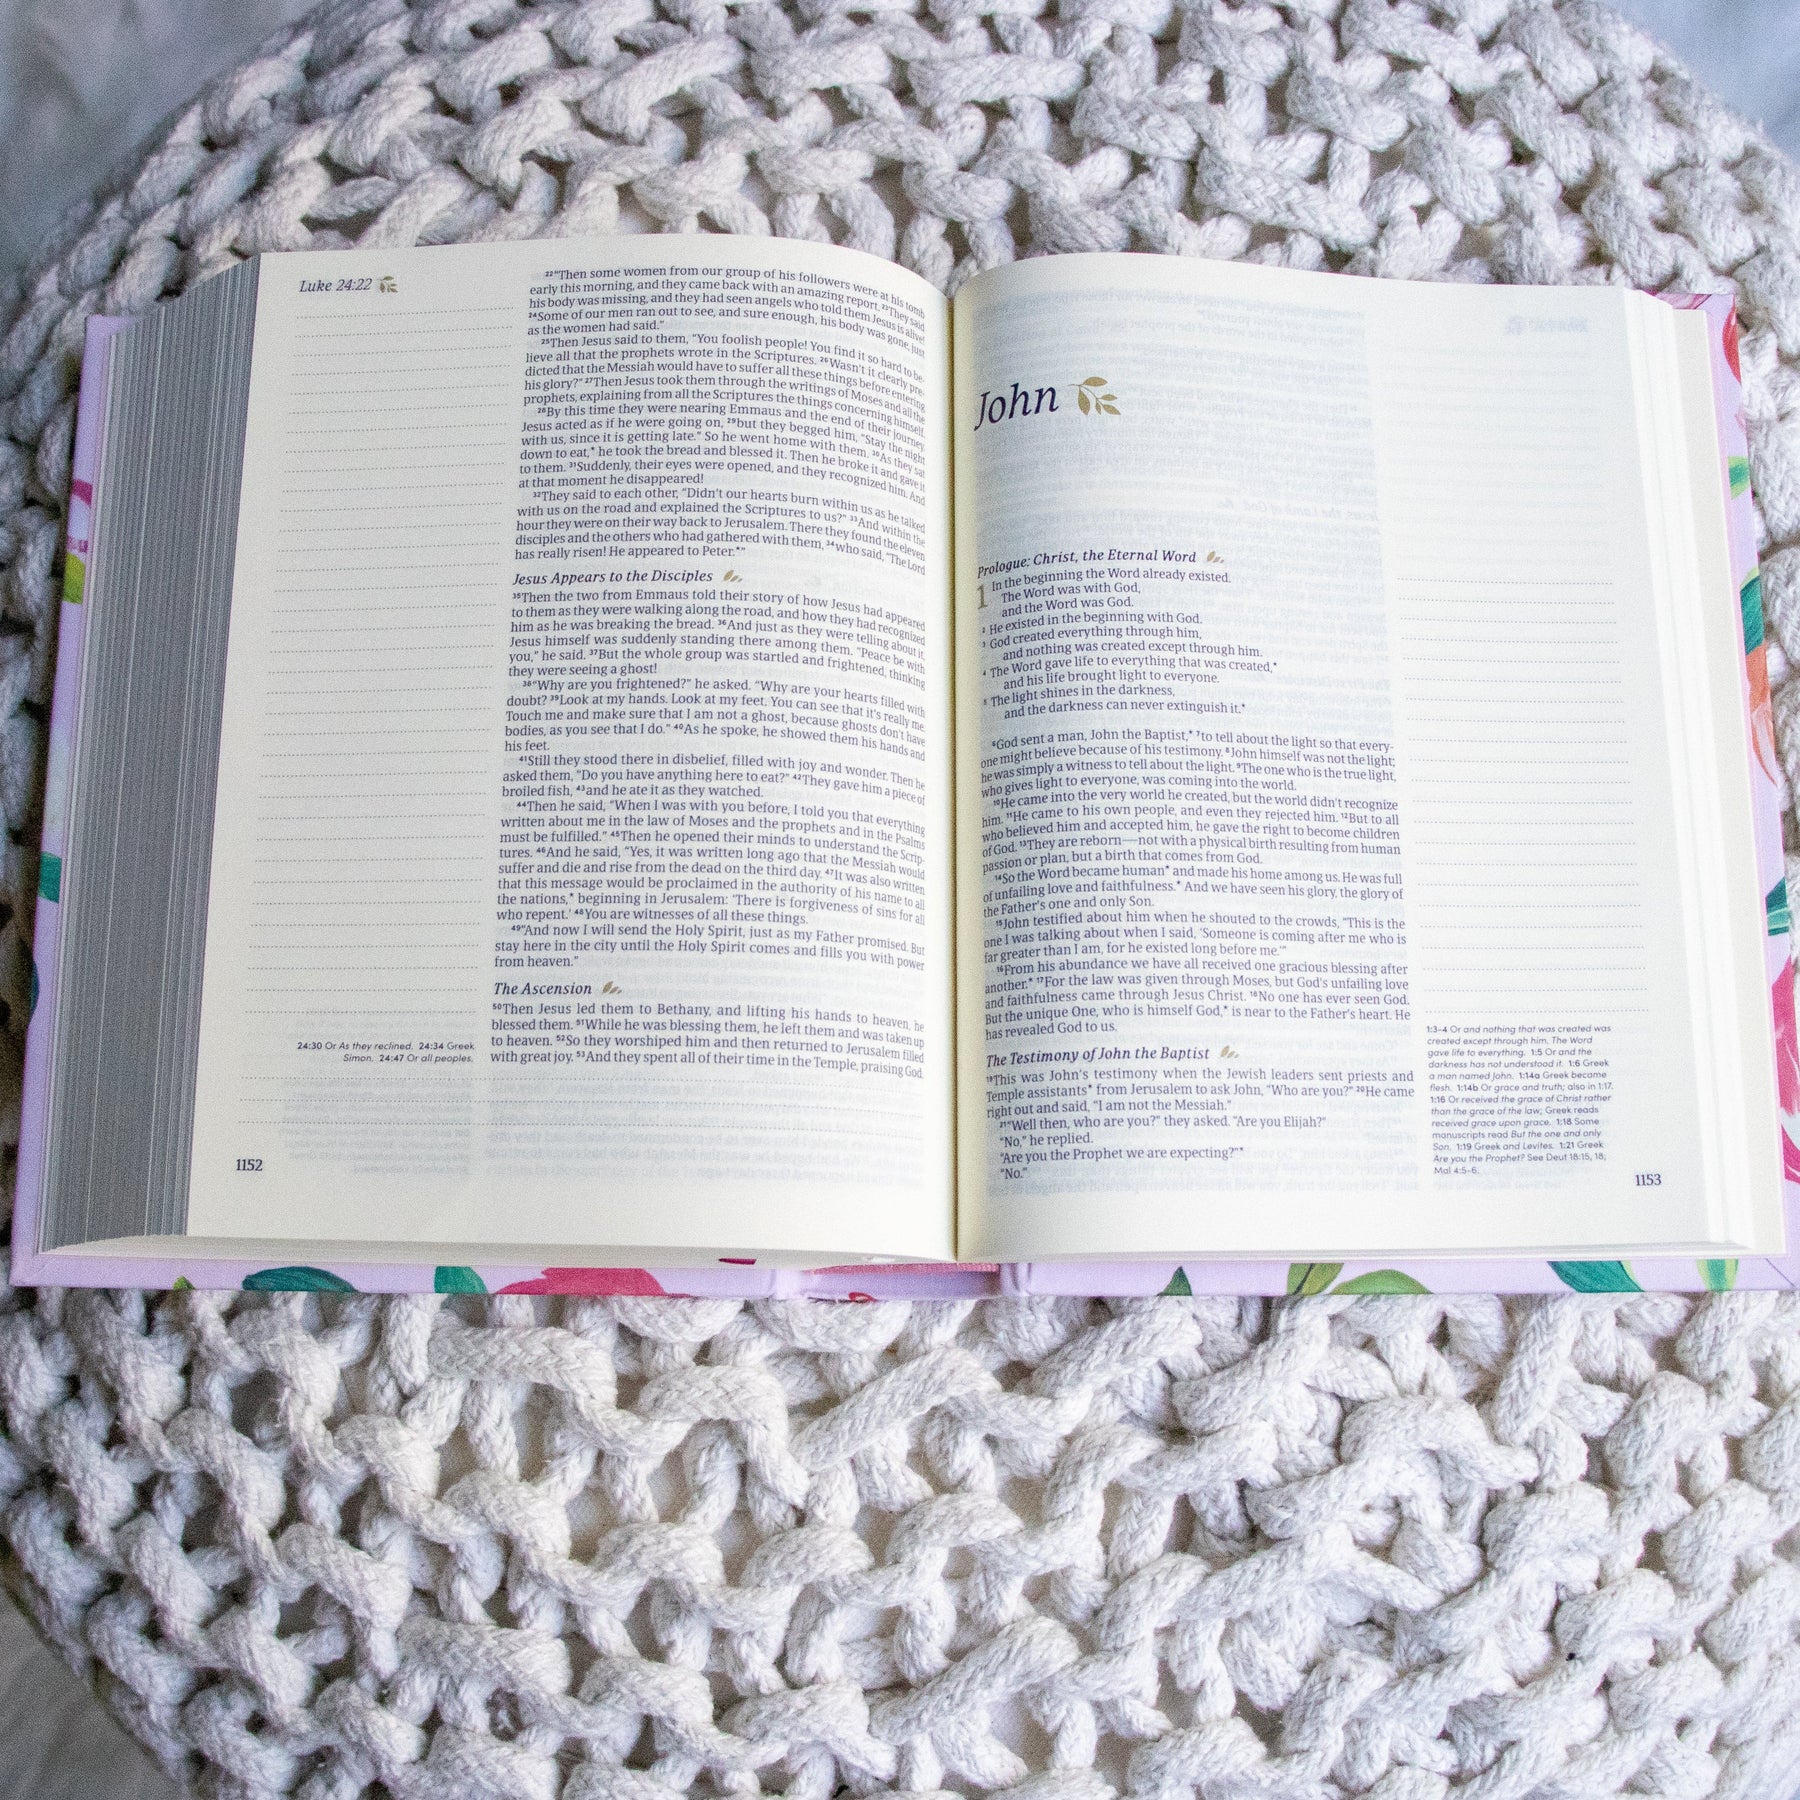 Luke 24:22
22"Then some women from our group of his followers were at his tomb
early this morning, and they came back with an amazing report. 23They said
his body was missing, and they had seen angels who told them Jesus is alive!
24Some of our men ran out to see, and sure enough, his body was gone, just
as the women had said."
25Then Jesus said to them, "You foolish people! You find it so hard to be-
lieve all that the prophets wrote in the Scriptures. 26Wasn't it clearly pre-
dicted that the Messiah would have to suffer all these things before entering
his glory?" 27Then Jesus took them through the writings of Moses and all the
prophets, explaining from all the Scriptures the things concerning himself.
28By this time they were nearing Emmaus and the end of their journey.
Jesus acted as if he were going on, 29but they begged him, "Stay the night
with us, since it is getting late." So he went home with them. 30As they sat
down to eat,* he took the bread and blessed it. Then he broke it and gave it
to them. 31Suddenly, their eyes were opened, and they recognized him. And
at that moment he disappeared!
32They said to each other, "Didn't our hearts burn within us as he talked
with us on the road and explained the Scriptures to us?" 33And within the
hour they were on their way back to Jerusalem. There they found the eleven
disciples and the others who had gathered with them, 34who said, "The Lord
has really risen! He appeared to Peter.*"
Jesus Appears to the Disciples
35Then the two from Emmaus told their story of how Jesus had appeared
to them as they were walking along the road, and how they had recognized
him as he was breaking the bread. 36And just as they were telling about it,
Jesus himself was suddenly standing there among them. "Peace be with
you," he said. 37But the whole group was startled and frightened, thinking
they were seeing a ghost!
38"Why are you frightened?" he asked. "Why are your hearts filled with
doubt? 39Look at my hands. Look at my feet. You can see that it's really me.
Touch me and make sure that I am not a ghost, because ghosts don't have
bodies, as you see that I do." 40As he spoke, he showed them his hands and
his feet.
41Still they stood there in disbelief, filled with joy and wonder. Then he
asked them, "Do you have anything here to eat?" 42They gave him a piece of
broiled fish, 43and he ate it as they watched.
44Then he said, "When I was with you before, I told you that everything
written about me in the law of Moses and the prophets and in the Psalms
must be fulfilled." 45Then he opened their minds to understand the Scrip-
tures. 46And he said, "Yes, it was written long ago that the Messiah would
suffer and die and rise from the dead on the third day. 47It was also written
that this message would be proclaimed in the authority of his name to all
the nations,* beginning in Jerusalem: 'There is forgiveness of sins for all
who repent.' 48You are witnesses of all these things.
49"And now I will send the Holy Spirit, just as my Father promised. But
stay here in the city until the Holy Spirit comes and fills you with power
from heaven."
The Ascension
50Then Jesus led them to Bethany, and lifting his hands to heaven, he
blessed them. 51While he was blessing them, he left them and was taken up
to heaven. 52So they worshiped him and then returned to Jerusalem filled
with great joy. 53And they spent all of their time in the Temple, praising God.
24:30 Or As they reclined. 24:34 Greek
Simon. 24:47 Or all peoples.
1152
John
Prologue: Christ, the Eternal Word
1 In the beginning the Word already existed.
The Word was with God,
and the Word was God.
2 He existed in the beginning with God.
3 God created everything through him,
and nothing was created except through him.
4 The Word gave life to everything that was created,*
and his life brought light to everyone.
5 The light shines in the darkness,
and the darkness can never extinguish it.*
6God sent a man, John the Baptist,* 7to tell about the light so that every-
one might believe because of his testimony. 8John himself was not the light;
he was simply a witness to tell about the light. 9The one who is the true light,
who gives light to everyone, was coming into the world.
10He came into the very world he created, but the world didn't recognize
him. 11He came to his own people, and even they rejected him. 12But to all
who believed him and accepted him, he gave the right to become children
of God. 13They are reborn—not with a physical birth resulting from human
passion or plan, but a birth that comes from God.
14So the Word became human* and made his home among us. He was full
of unfailing love and faithfulness.* And we have seen his glory, the glory of
the Father's one and only Son.
15John testified about him when he shouted to the crowds, "This is the
one I was talking about when I said, 'Someone is coming after me who is
far greater than I am, for he existed long before me.'"
16From his abundance we have all received one gracious blessing after
another.* 17For the law was given through Moses, but God's unfailing love
and faithfulness came through Jesus Christ. 18No one has ever seen God.
But the unique One, who is himself God,* is near to the Father's heart. He
has revealed God to us.
The Testimony of John the Baptist
19This was John's testimony when the Jewish leaders sent priests and
Temple assistants* from Jerusalem to ask John, "Who are you?" 20He came
right out and said, "I am not the Messiah."
21"Well then, who are you?" they asked. "Are you Elijah?"
"No," he replied.
"Are you the Prophet we are expecting?"*
"No."
1:3-4 Or and nothing that was created was
created except through him. The Word
gave life to everything. 1:5 Or and the
darkness has not understood it. 1:6 Greek
a man named John. 1:14a Greek became
flesh. 1:14b Or grace and truth; also in 1:17.
1:16 Or received the grace of Christ rather
than the grace of the law; Greek reads
received grace upon grace. 1:18 Some
manuscripts read But the one and only
Son. 1:19 Greek and Levites. 1:21 Greek
Are you the Prophet? See Deut 18:15, 18;
Mal 4:5-6.
1153